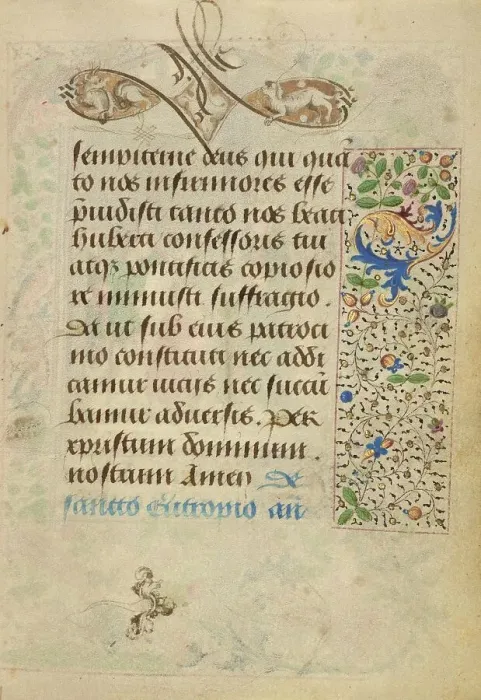 sempiterne deus qui qua
to nos infirmiores esse
pvidisti tanto nos beati
huberti confessoris tui
atq3 pontificis copiosio
re muniisti suffragio.
Da ut sub eius patroci
nio constituti nec addi
camur viciis nec succu
bamur aduersis. Per
xpristum dominum.
nostrum Amen De
sancto Eutropio an